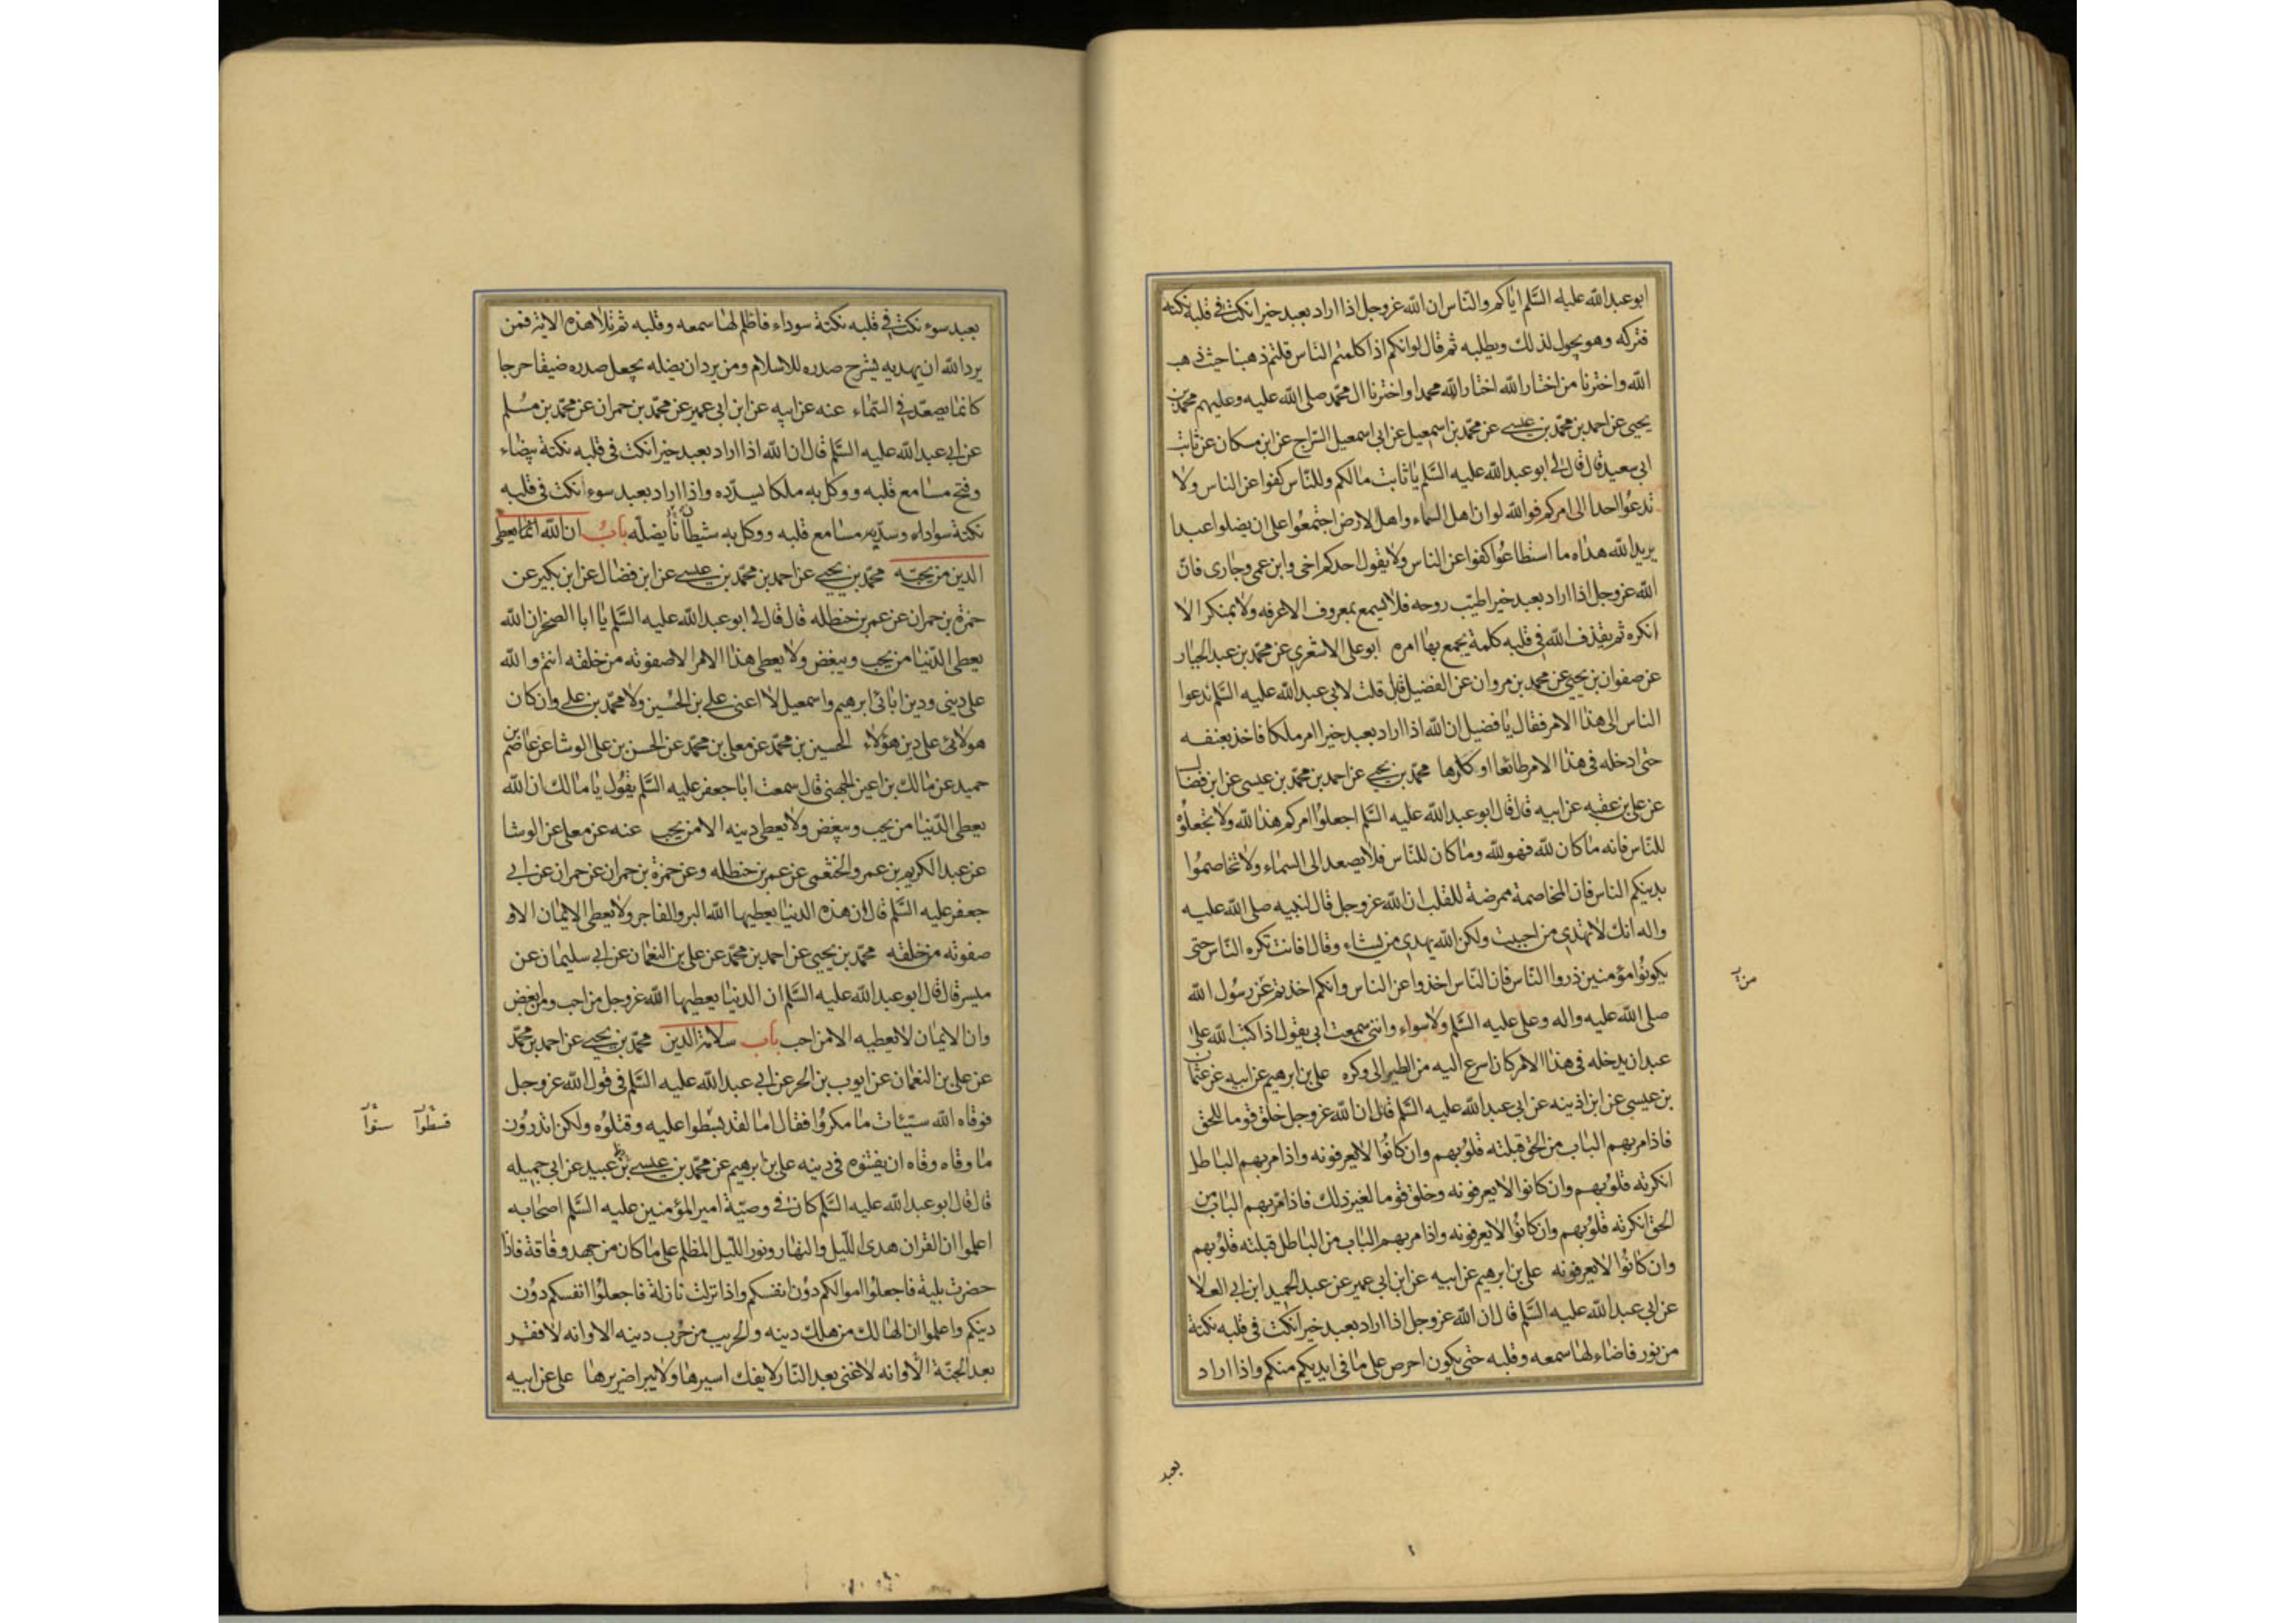 ابو عبد الله عليه السَّلم ايٰاكم والنّاس ان الله عز وجل اذا اراد بعبد خيرا نكت في قلبه نكته
فتركه وهو يجول لذلك ويطلبه ثم قال لو انكم اذا كلمتم النّاس قلتم ذهبنا حيث ذهب
الله واخترنا من اختار الله اختار الله محمدا واخترنا ال محمد صلى الله عليه وعليهم محمّد بن
يحيى عن احمد بن محمّد بن عيسى عن محمّد بن اسمعيل عن ابي اسمعيل السّراج عن ابن مسكان عن ثابت
ابي سعيد قال قال لي ابو عبد الله عليه السَّلم يٰا ثابت مٰا لكم وللنّاس كفوا عن الناس ولا
تدعُوا احدا الى امركم فوالله لو ان اهل السماء واهل الارض اجتمعُوا على ان يضلوا عبدا
يريد الله هداه ما استطاعُوا كفوا عن الناس ولا يقول احدكم اخى وابن عمى وجٰارى فانّ
الله عز وجل اذا اراد بعبد خيرا طيّب روحه فلا يسمع بمعروف الا عرفه ولا بمنكر الا
انكره ثم يقذف الله في قلبه كلمة يجمع بهٰا امره ابو على الاشعرى عن محمّد بن عبد الجبار
عن صفوان بن يحيى عن محمد بن مروان عن الفضيل قال قلت لابى عبد الله عليه السَّلم ندعوا
الناس الى هذا الامر فقال يٰا فضيل ان الله اذا اراد بعبد خيرا امر ملكا فاخذ بعنقه
حتى ادخله فى هذا الامر طائعا او كارها محمّد بن يحيى عن احمد بن محمّد بن عيسى عن ابن فضال
عن على بن عقبه عن ابيه قال قال ابو عبد الله عليه السَّلم اجعلوُا امركم هذا لله ولا تجعلوُه
للنّاس فانه مٰا كان لله فهو لله ومٰا كان للنّاس فلا يصعد الى السمٰاء ولا تخاصمُوا
بدينكم الناس فان المخاصمة ممرضة للقلب ان الله عز وجل قال لنبيه صلى الله عليه
واله انك لا تهدى من احببت ولكن الله يهدى من يشاء وقال افانت تكره النّاس حتى
يكونُوا مؤمنين ذروا النّاس فان النّاس اخذوا عن الناس وانكم اخذتم عن رسُول الله
صلى الله عليه واله وعلى عليه السَّلم ولا سواء واننى سمعت ابى يقول اذا كتب الله على
عبد ان يدخله فى هذا الامر كان اسرع اليه من الطير الى وكره على بن ابرهيم عن ابيه عن عثمان
بن عيسى عن ابن اذينه عن ابى عبد الله عليه السَّلم قال ان الله عز وجل خلق قوما للحق
فاذا مر بهم البٰاب من الحق قبلته قلوُبهم وان كانُوا لا يعرفونه واذا مر بهم البٰاطل
انكرته قلوُبهم وان كانوا لا يعرفونه وخلق قوما لغير ذلك فاذا مرّ بهم البٰاب من
الحق انكرته قلوُبهم وان كانُوا لا يعرفونه واذا مر بهم البٰاب من البٰاطل قبلته قلوُبهم
وان كانُوا لا يعرفونه على بن ابرهيم عن ابيه عن ابن ابى عمير عن عبد الحميد ابن ابى العلا
عن ابى عبد الله عليه السَّلم قال ان الله عز وجل اذا اراد بعبد خيرا نكت فى قلبه نكتة
من نور فاضاء لهٰا سمعه وقلبه حتى يكون احرص على مٰا فى ايديكم منكم واذا اراد
بعبد
بعبد سوء نكت في قلبه نكتة سوداء فاظلم لهٰا سمعه وقلبه ثم تلا هذه الاية فمن
يرد الله ان يهديه يشرح صدره للاسلام ومن يرد ان يضله يجعل صدره ضيقا حرجا
كانمٰا يصعّد في السّمٰاء عنه عن ابيه عن ابن ابى عمير عن محمّد بن حمران عن محمّد بن مسُلم
عن ابى عبد الله عليه السَّلم قال ان الله اذا اراد بعبد خيرا نكت فى قلبه نكتة بيضٰاء
وفتح مسٰامع قلبه ووكل به ملكا يسدّده واذا اراد بعبد سوءا نكت فى قلبه
نكتة سواداء وسدّ مسٰامع قلبه ووكل به شيطٰانا يضلّه بابُ ان الله انمٰا يعطى
الدين من يحبّه محمّد بن يحيى عن احمد بن محمّد بن عيسى عن ابن فضٰال عن ابن بكير عن
حمزة بن حمران عن عمر بن حنظله قال قال لي ابو عبد الله عليه السَّلم يٰا ابا الصخر ان الله
يعطى الدّنيٰا من يحب ويبغض ولا يعطى هذا الامر الا صفوته من خلقه انتم والله
على دينى ودين ابائى ابرهيم واسمعيل لا اعنى على بن الحُسين ولا محمّد بن على وان كان
هولائى على دين هؤلاء الحسين بن محمّد عن معلى بن محمّد عن الحسن بن على الوشا عن عاصم بن
حميد عن مٰالك بن اعين الجهنى قال سمعت ابٰا جعفر عليه السَّلم يقُول يٰا مٰالك ان الله
يعطى الدّنيٰا من يحب ويبغض ولا يعطى دينه الا من يحب عنه عن معلى عن الوشا
عن عبد الكريم بن عمرو الخثعمى عن عمر بن حنظله وعن حمزة بن حمران عن حمران عن ابي
جعفر عليه السَّلم قال ان هذه الدنيٰا يعطيها الله البر والفاجر ولا يعطى الايمٰان الا و
صفوته من خلقه محمّد بن يحيى عن احمد بن محمّد عن على بن النعمٰان عن ابي سليمٰان عن
ميسر قال قال ابو عبد الله عليه السَّلم ان الدنيٰا يعطيها الله عز وجل من احب ومن ابغض
وان الايمٰان لا يعطيه الا من احب باب سلامة الدين محمّد بن يحيى عن احمد بن محمّد
عن على بن النعمٰان عن ايوب بن الحر عن ابي عبد الله عليه السَّلم فى قول الله عز وجل
فوقاه الله سيّئات مٰا مكروُا فقال امٰا لقد بسطوا عليه وقتلوُه ولكن اتدروُن
مٰا وقاه وقاه ان يفتنوه فى دينه على بن ابرهيم عن محمّد بن عيسى بن عبيد عن ابي جميله
قال قال ابو عبد الله عليه السَّلم كان في وصيّة امير المؤمنين عليه السَّلم اصحٰابه
اعلموا ان القران هدى الليل والنهٰار ونور اللّيل المظلم على مٰا كان من جهد وفاقة فاذا
حضرت بلية فاجعلوُا اموالكم دوُن انفسكم واذا نزلت نازلة فاجعلوُا انفسكم دوُن
دينكم واعلموا ان الهٰالك من هلك دينه والحريب من حُرب دينه الا وانه لا فقر
بعد الجنّة الّا وانه لا غنى بعد النّار لا يفك اسيرهٰا ولا يبرا ضريرهٰا على عن ابيه